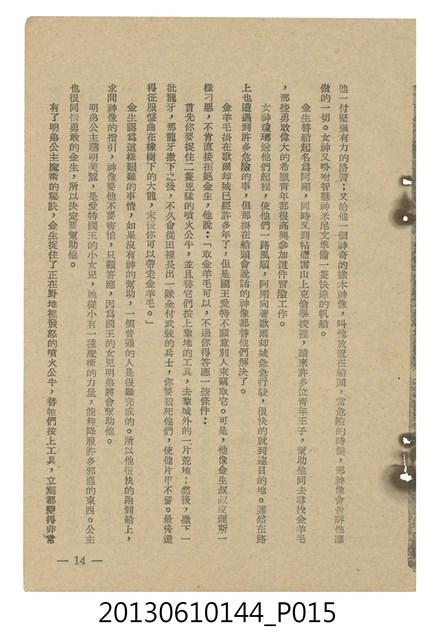 他一付堅强有力的胳膊;又給他一個神奇的橡木神像,叫他放置在船頭,當危險的時候,那神像會告訴他應
做的一切。女神又吩咐智慧神米尼文準備一隻快速的帆船。
金生替船起名爲阿剛,同時又到帖禮雷山上克倫學校裡,請來許多位靑年王子,幫助他同去尋找金羊毛
,那些勇敢偉大的希臘靑年都很高興參加這件冒險工作。
女神瓊瑙送他們起程,使他們一路風順,阿剛向著歌爾却城急急行駛,很快的就到達目的地。雖然在路
上也遭遇到許多危險的事,但那掛在船頭會說話的神像都替他們解決了。
金羊毛掛在歌爾却城已經許多年了,但是國王愛特不願意別人來竊取它。可是,他像金生叔叔皮理斯一
樣刁惡,不肯直接拒絕金生,他說:「取金羊毛可以,不過你得答應一些條件:
首先你要捉住二隻兇猛的噴火公牛,並且替它們按上犂地的工具,去犂城外的一片荒地;然後,撒下一
批龍牙,那龍牙撒下之後,不久會從田裡長出一隊全付武裝的兵士,你要殺死他們,使他片甲不留。最後還
得征服盤曲在橡樹下的大龍,末後你可以帶走金羊毛。」
金生認爲這樣艱難的事情,如果沒有神的幫助,一個普通的人是很難完成的。所以他很快的跑到船上,
求問神像的指引,神像要他不要害怕,只顧答應,因爲國王的女兒明弟將會幫助他。
明弟公主聰明美麗,是愛特國王的小女兒,她從小有一種魔術的力量,能夠降服許多邪惡的東西。公主
也很同情勇敢的金生,所以決定要幫助他。
有了明弟公主魔術的秘訣,金生捉住了正在野地裡發怒的噴火公牛,替牠們按上工具,立刻都變得非常
— 14 —
20130610144_P015